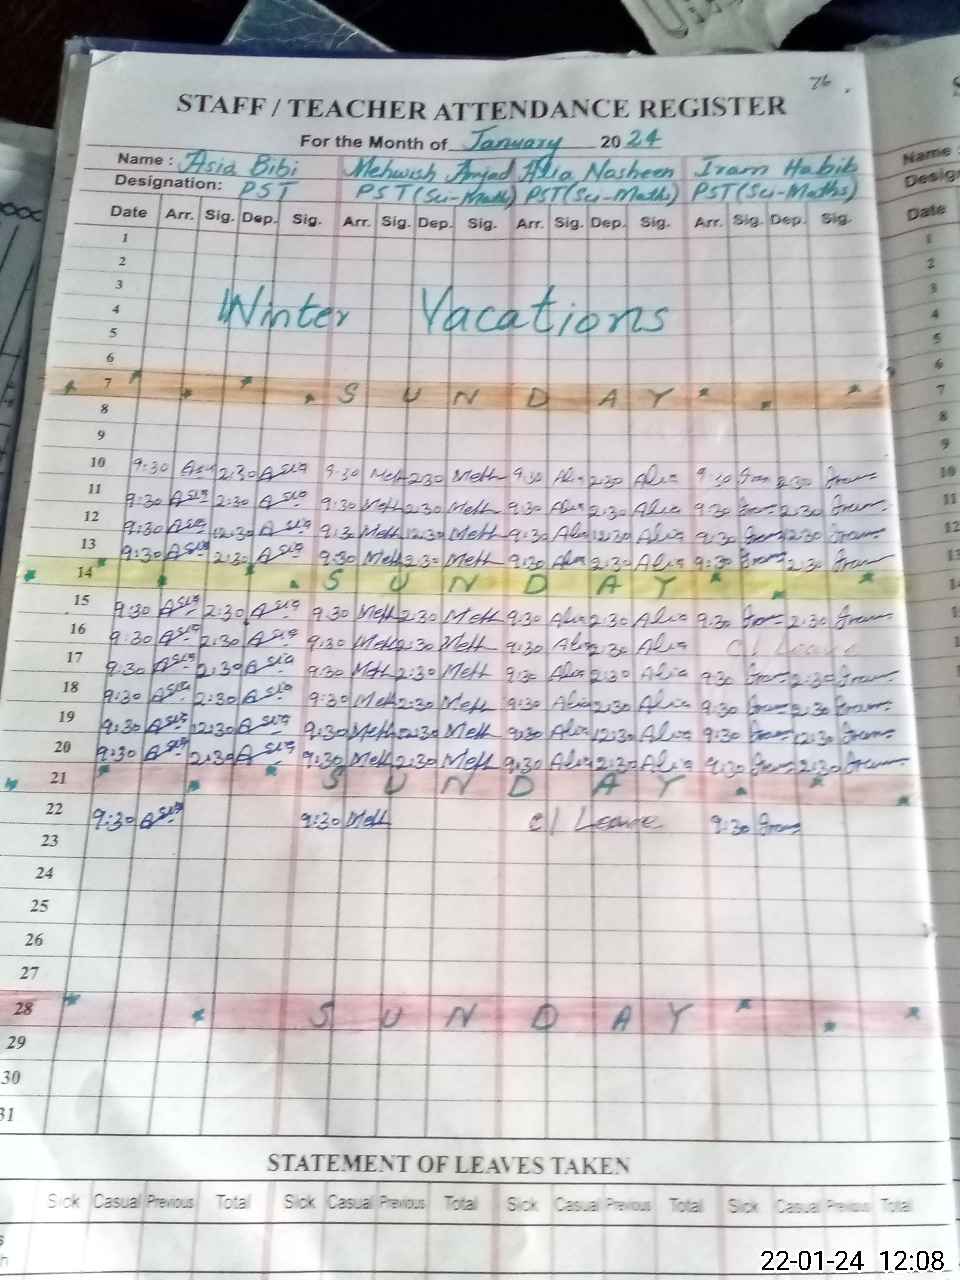 76
STAFF / TEACHER ATTENDANCE REGISTER
For the Month of January 2024
Name : Asia Bibi Mehwish Amjad Alia Nasheen Iram Habib
Designation: PST PST (Sci-Math) PST (Sci-Maths) PST (Sci-Maths)
Date Arr. Sig. Dep. Sig. Arr. Sig. Dep. Sig. Arr. Sig. Dep. Sig. Arr. Sig. Dep. Sig.
1
2
3
4 Winter Vacations
5
6
7 SUNDAY
8
9
10 9:30 2:30 9:30 Meh 2:30 Meh 9:30 Alia 2:30 Alia 9:30 Iram 2:30 Iram
11 9:30 Asia 2:30 Asia 9:30 Meh 2:30 Meh 9:30 Alia 2:30 Alia 9:30 Iram 2:30 Iram
12 9:30 Asia 12:30 Asia 9:30 Meh 12:30 Meh 9:30 Alia 12:30 Alia 9:30 Iram 12:30 Iram
13 9:30 Asia 2:30 Asia 9:30 Meh 2:30 Meh 9:30 Alia 2:30 Alia 9:30 Iram 2:30 Iram
14 SUNDAY
15 9:30 Asia 2:30 Asia 9:30 Meh 2:30 Meh 9:30 Alia 2:30 Alia 9:30 Iram 2:30 Iram
16 9:30 Asia 2:30 Asia 9:30 Meh 2:30 Meh 9:30 Alia 2:30 Alia C/ Leave
17 9:30 Asia 2:30 Asia 9:30 Meh 2:30 Meh 9:30 Alia 2:30 Alia 9:30 Iram 2:30 Iram
18 9:30 Asia 2:30 Asia 9:30 Meh 2:30 Meh 9:30 Alia 2:30 Alia 9:30 Iram 2:30 Iram
19 9:30 Asia 12:30 Asia 9:30 Meh 12:30 Meh 9:30 Alia 12:30 Alia 9:30 Iram 12:30 Iram
20 9:30 Asia 2:30 Asia 9:30 Meh 2:30 Meh 9:30 Alia 2:30 Alia 9:30 Iram 2:30 Iram
21 SUNDAY
22 9:30 Asia 9:30 Meh C/ Leave 9:30 Iram
23
24
25
26
27
28 SUNDAY
29
30
31
STATEMENT OF LEAVES TAKEN
Sick Casual Previous Total Sick Casual Previous Total Sick Casual Previous Total Sick Casual Previous Total
22-01-24 12:08